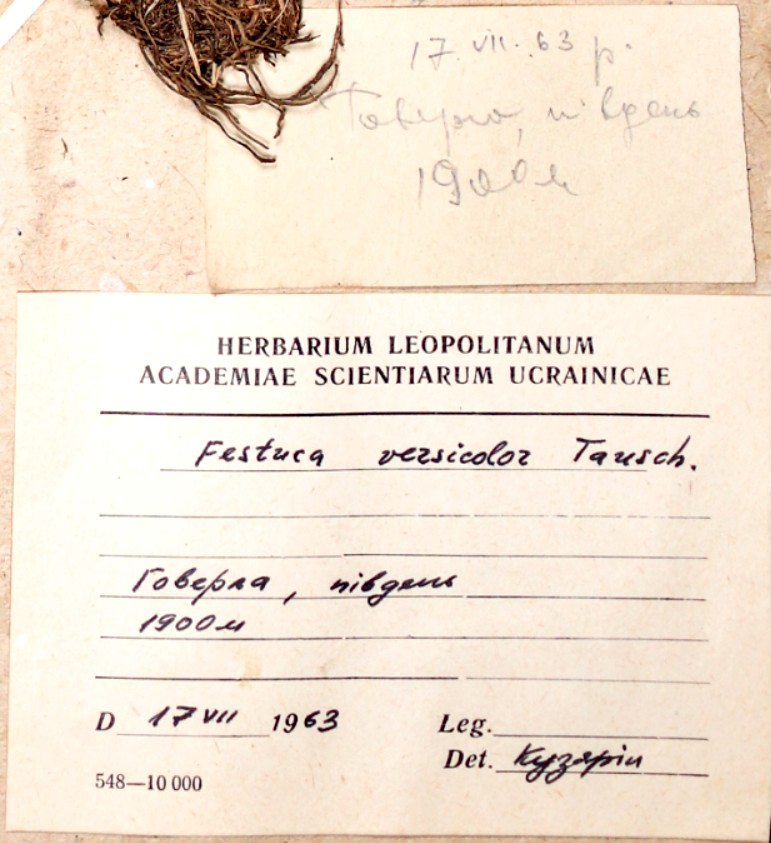 17.VII.63 р.
Говерла, південь
1900м
HERBARIUM LEOPOLITANUM
ACADEMIAE SCIENTIARUM UCRAINICAE
Festuca versicolor Tausch.
Говерла, південь
1900м
D 17 VII 1963 Leg.
Det. Кузярін
548—10 000